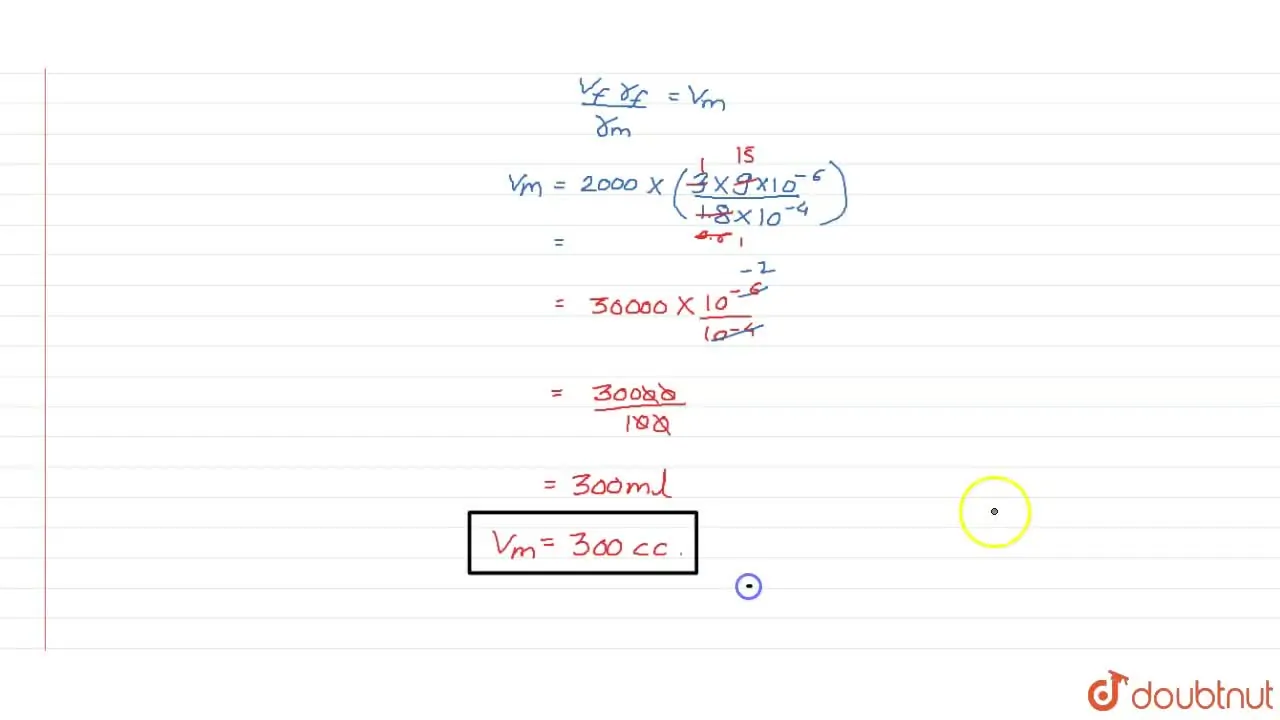 V_f γ_f / γ_m = V_m
1 15
V_m = 2000 × ( 3 × 9 × 10^-6 / 1.8 × 10^-4 )
= 0.6 1
-2
= 30000 × 10^-6 / 10^-4
= 30000 / 100
= 300 ml
V_m = 300 cc.
doubtnut